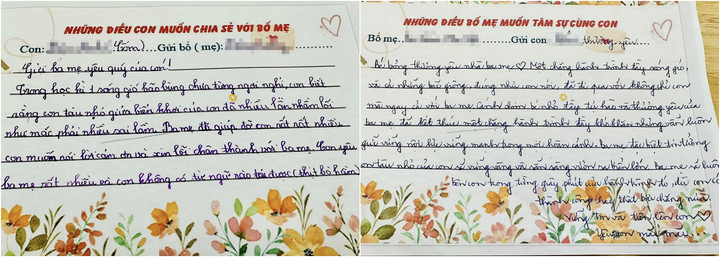 NHỮNG ĐIỀU CON MUỐN CHIA SẺ VỚI BỐ MẸ
Con: Gửi bố ( mẹ):
Gửi ba mẹ yêu quý của con!
Trong học kì 1 sóng gió bão bùng chưa từng ngơi nghỉ, con biết
rằng con tàu nhỏ giữa biển khơi của con đã nhiều lần nhầm lối
như mắc phải nhiều sai lầm. Ba mẹ đã giúp đỡ con rất rất nhiều
con muốn nói lời cảm ơn và xin lỗi chân thành với ba mẹ. Con yêu
ba mẹ rất nhiều và con không có từ ngữ nào tả được
NHỮNG ĐIỀU BỐ MẸ MUỐN TÂM SỰ CÙNG CON
Bố mẹ: Gửi con thương yêu
thương yêu nhà ba mẹ Một chặng hành trình đầy sóng gió,
và cả những bão giông đúng như con nói, để đi qua với không chỉ con
mà ngay cả với ba mẹ. Cánh đom bé nhỏ đầy tự hào và thương yêu của
ba mẹ đã kết thúc một chặng hành trình đầy khó khăn nhưng vẫn luôn
giữ vững nội lực vững mạnh trong mọi hoàn cảnh. Ba mẹ đặc biệt tin tưởng
con tàu nhỏ của con sẽ vững vàng và sẵn sàng vươn ra biển lớn. Ba mẹ sẽ luôn
bên con trong từng giây phút của hành trình đó, dù con có
thành công hay thất bại chăng nữa
Vững tin và tiến lên con
Yêu con mãi mãi